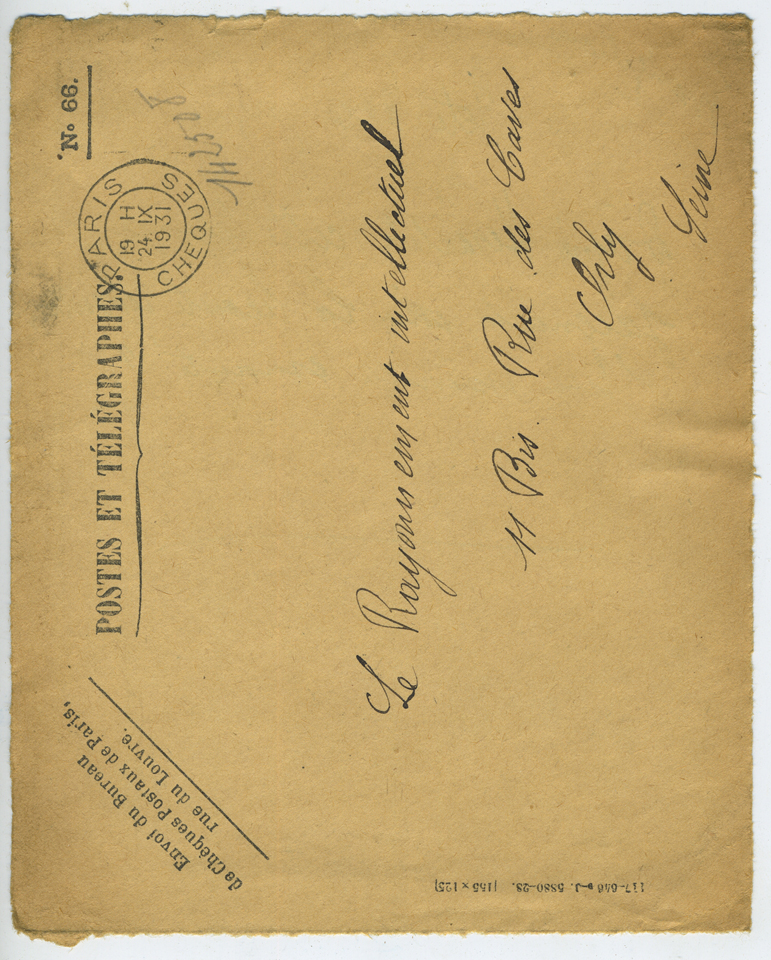 Envoi du Bureau
de Chèques Postaux de Paris,
rue du Louvre.
POSTES ET TÉLÉGRAPHES.
N° 66.
PARIS
CHEQUES
19 H
24 IX
1931
142508
Le Rayonnement intellectuel
11 Bis. Rue des Caves
Orly
Seine
J. 5880-28. [155 x 125]